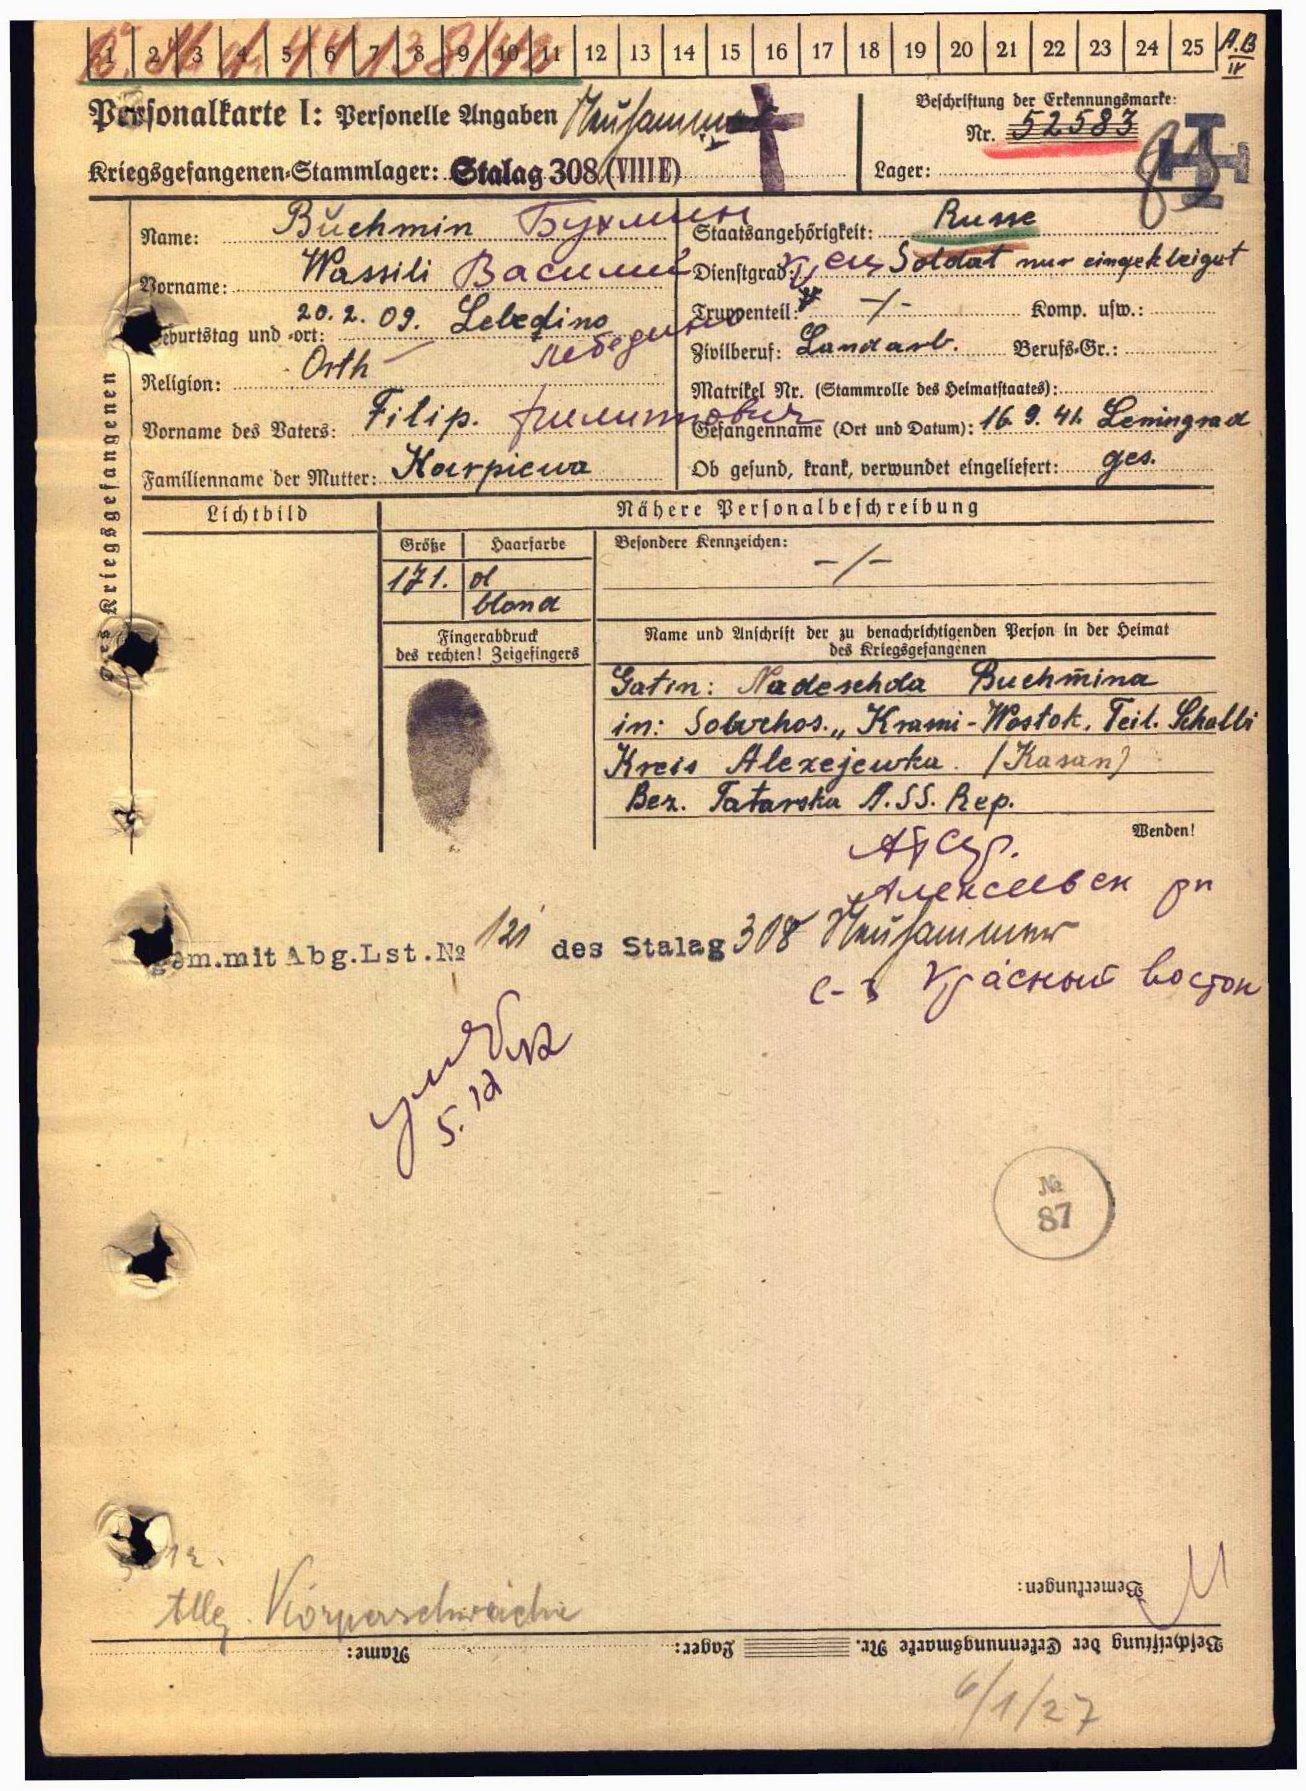 1 2 3 4 5 6 7 8 9 10 11 12 13 14 15 16 17 18 19 20 21 22 23 24 25 A.B
IV
Personalkarte I: Personelle Angaben Neuhammer
Beschriftung der Erkennungsmarke:
Nr. 52583
Kriegsgefangenen-Stammlager: Stalag 308 (VIII E)
Lager:
Des Kriegsgefangenen
Name: Buchmin Бухмин
Vorname: Wassili Василий
Geburtstag und -ort: 20.2.09. Lebedino
Лебедино
Religion: Orth
Vorname des Vaters: Filip. Филиппович
Familienname der Mutter: Karpiewa
Staatsangehörigkeit: Russe
Dienstgrad: Soldat nur eingekleigut
Truppenteil: -/- Komp. usw.:
Zivilberuf: Landarb. Berufs-Gr.:
Matrikel Nr. (Stammrolle des Heimatstaates):
Gefangenname (Ort und Datum): 16.9.41. Leningrad
Ob gesund, krank, verwundet eingeliefert: ges.
Lichtbild
Nähere Personalbeschreibung
Größe Haarfarbe
171. d
blond
Besondere Kennzeichen:
-/-
Fingerabdruck
des rechten! Zeigefingers
Name und Anschrift der zu benachrichtigenden Person in der Heimat
des Kriegsgefangenen
Gatin: Nadeschda Buchmina
in: Sowchos. „ Krasni-Wostok, Teil. Schalli
Kreis Alexejewka. (Kasan)
Bez. Tatarska A.SS. Rep.
Wenden!
Алексеевск рн
gem. mit Abg. Lst. № 121 des Stalag 308 Neuhammer
с-з Красный Восток
умер
5.12
№
87
Allg. Körperschwäche
Bemerkungen:
Beschriftung der Erkennungsmarke Nr. Lager: Name:
6/1/27